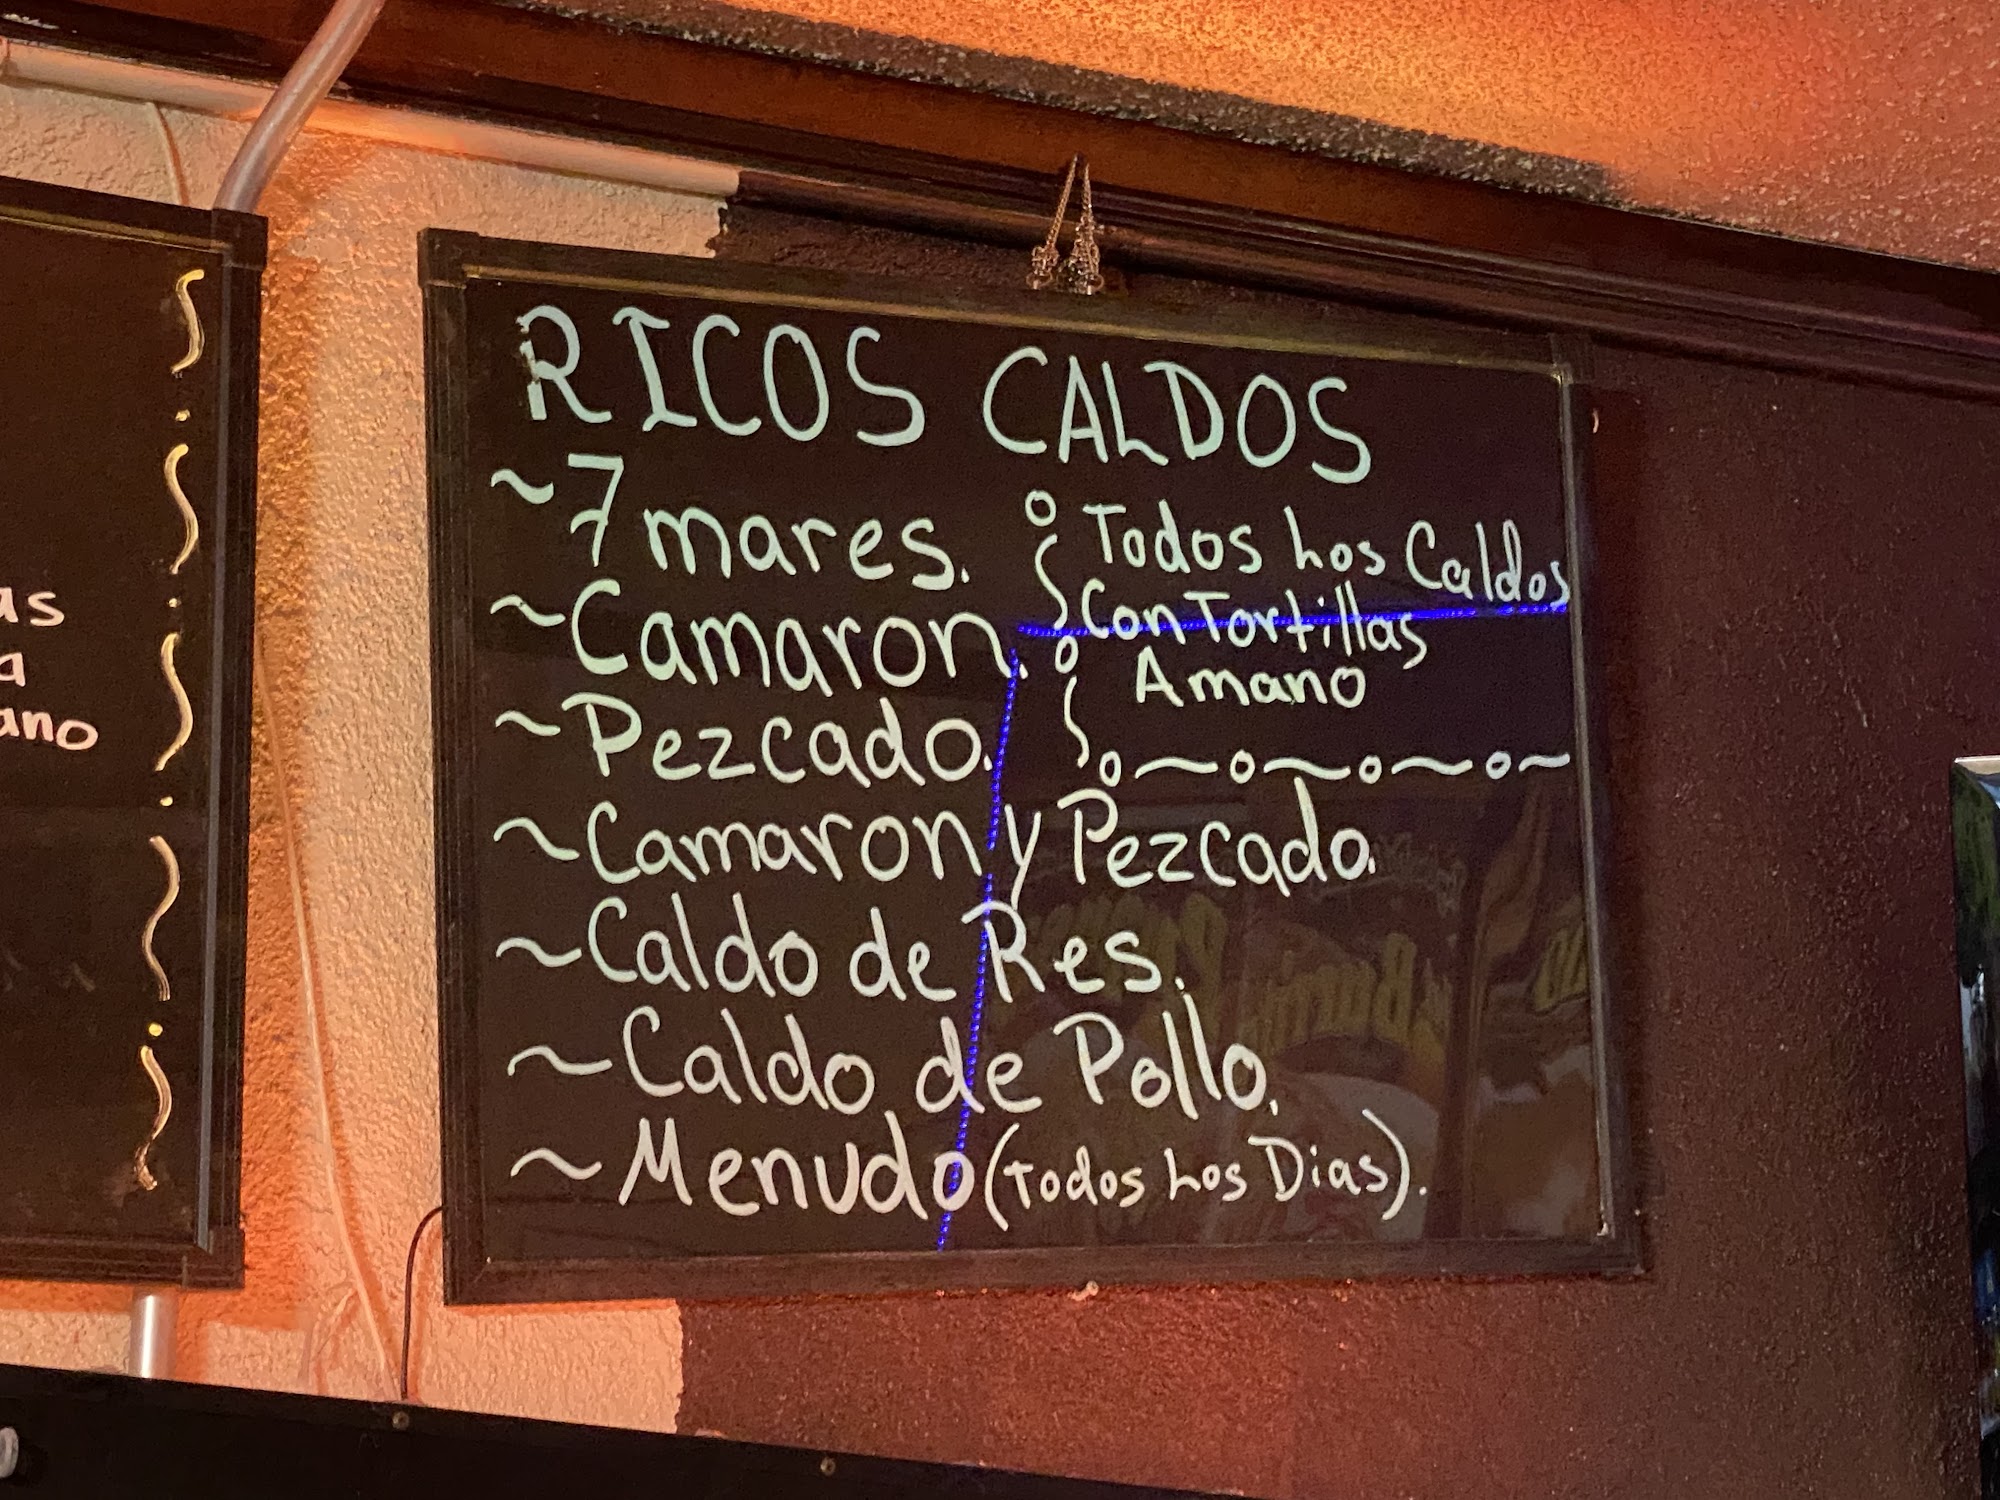 as
a
ano
RICOS CALDOS
~7 mares.
~Camaron.
~Pezcado.
Todos Los Caldos
Con Tortillas
Amano
~Camaron y Pezcado.
~Caldo de Res.
~Caldo de Pollo.
~Menudo (Todos Los Dias).